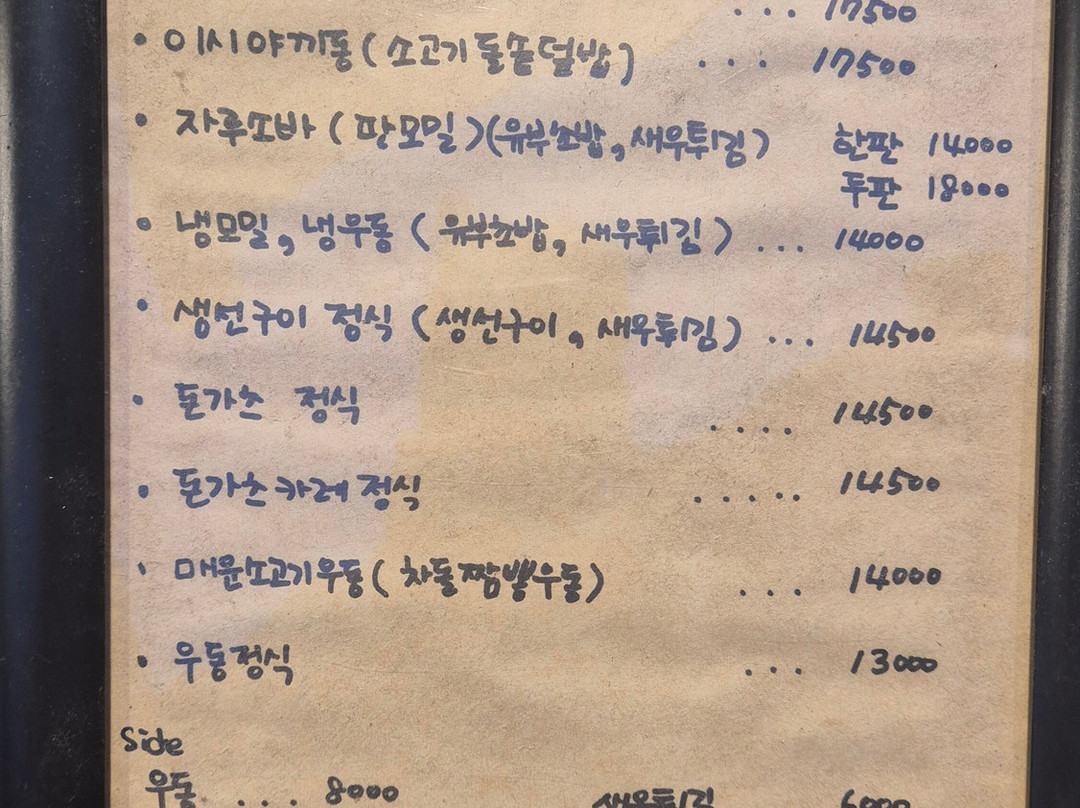 ... 17500
• 이시야끼동 (소고기 돌솥덮밥) ... 17500
• 자루소바 (판모밀)(유부초밥, 새우튀김) 한판 14000
두판 18000
• 냉모밀, 냉우동 (유부초밥, 새우튀김) ... 14000
• 생선구이 정식 (생선구이, 새우튀김) ... 14500
• 돈가츠 정식 .... 14500
• 돈가츠카레 정식 ..... 14500
• 매운소고기우동 (차돌짬뽕우동) ... 14000
• 우동정식 ... 13000
Side
우동 ... 8000 새우튀김 6000